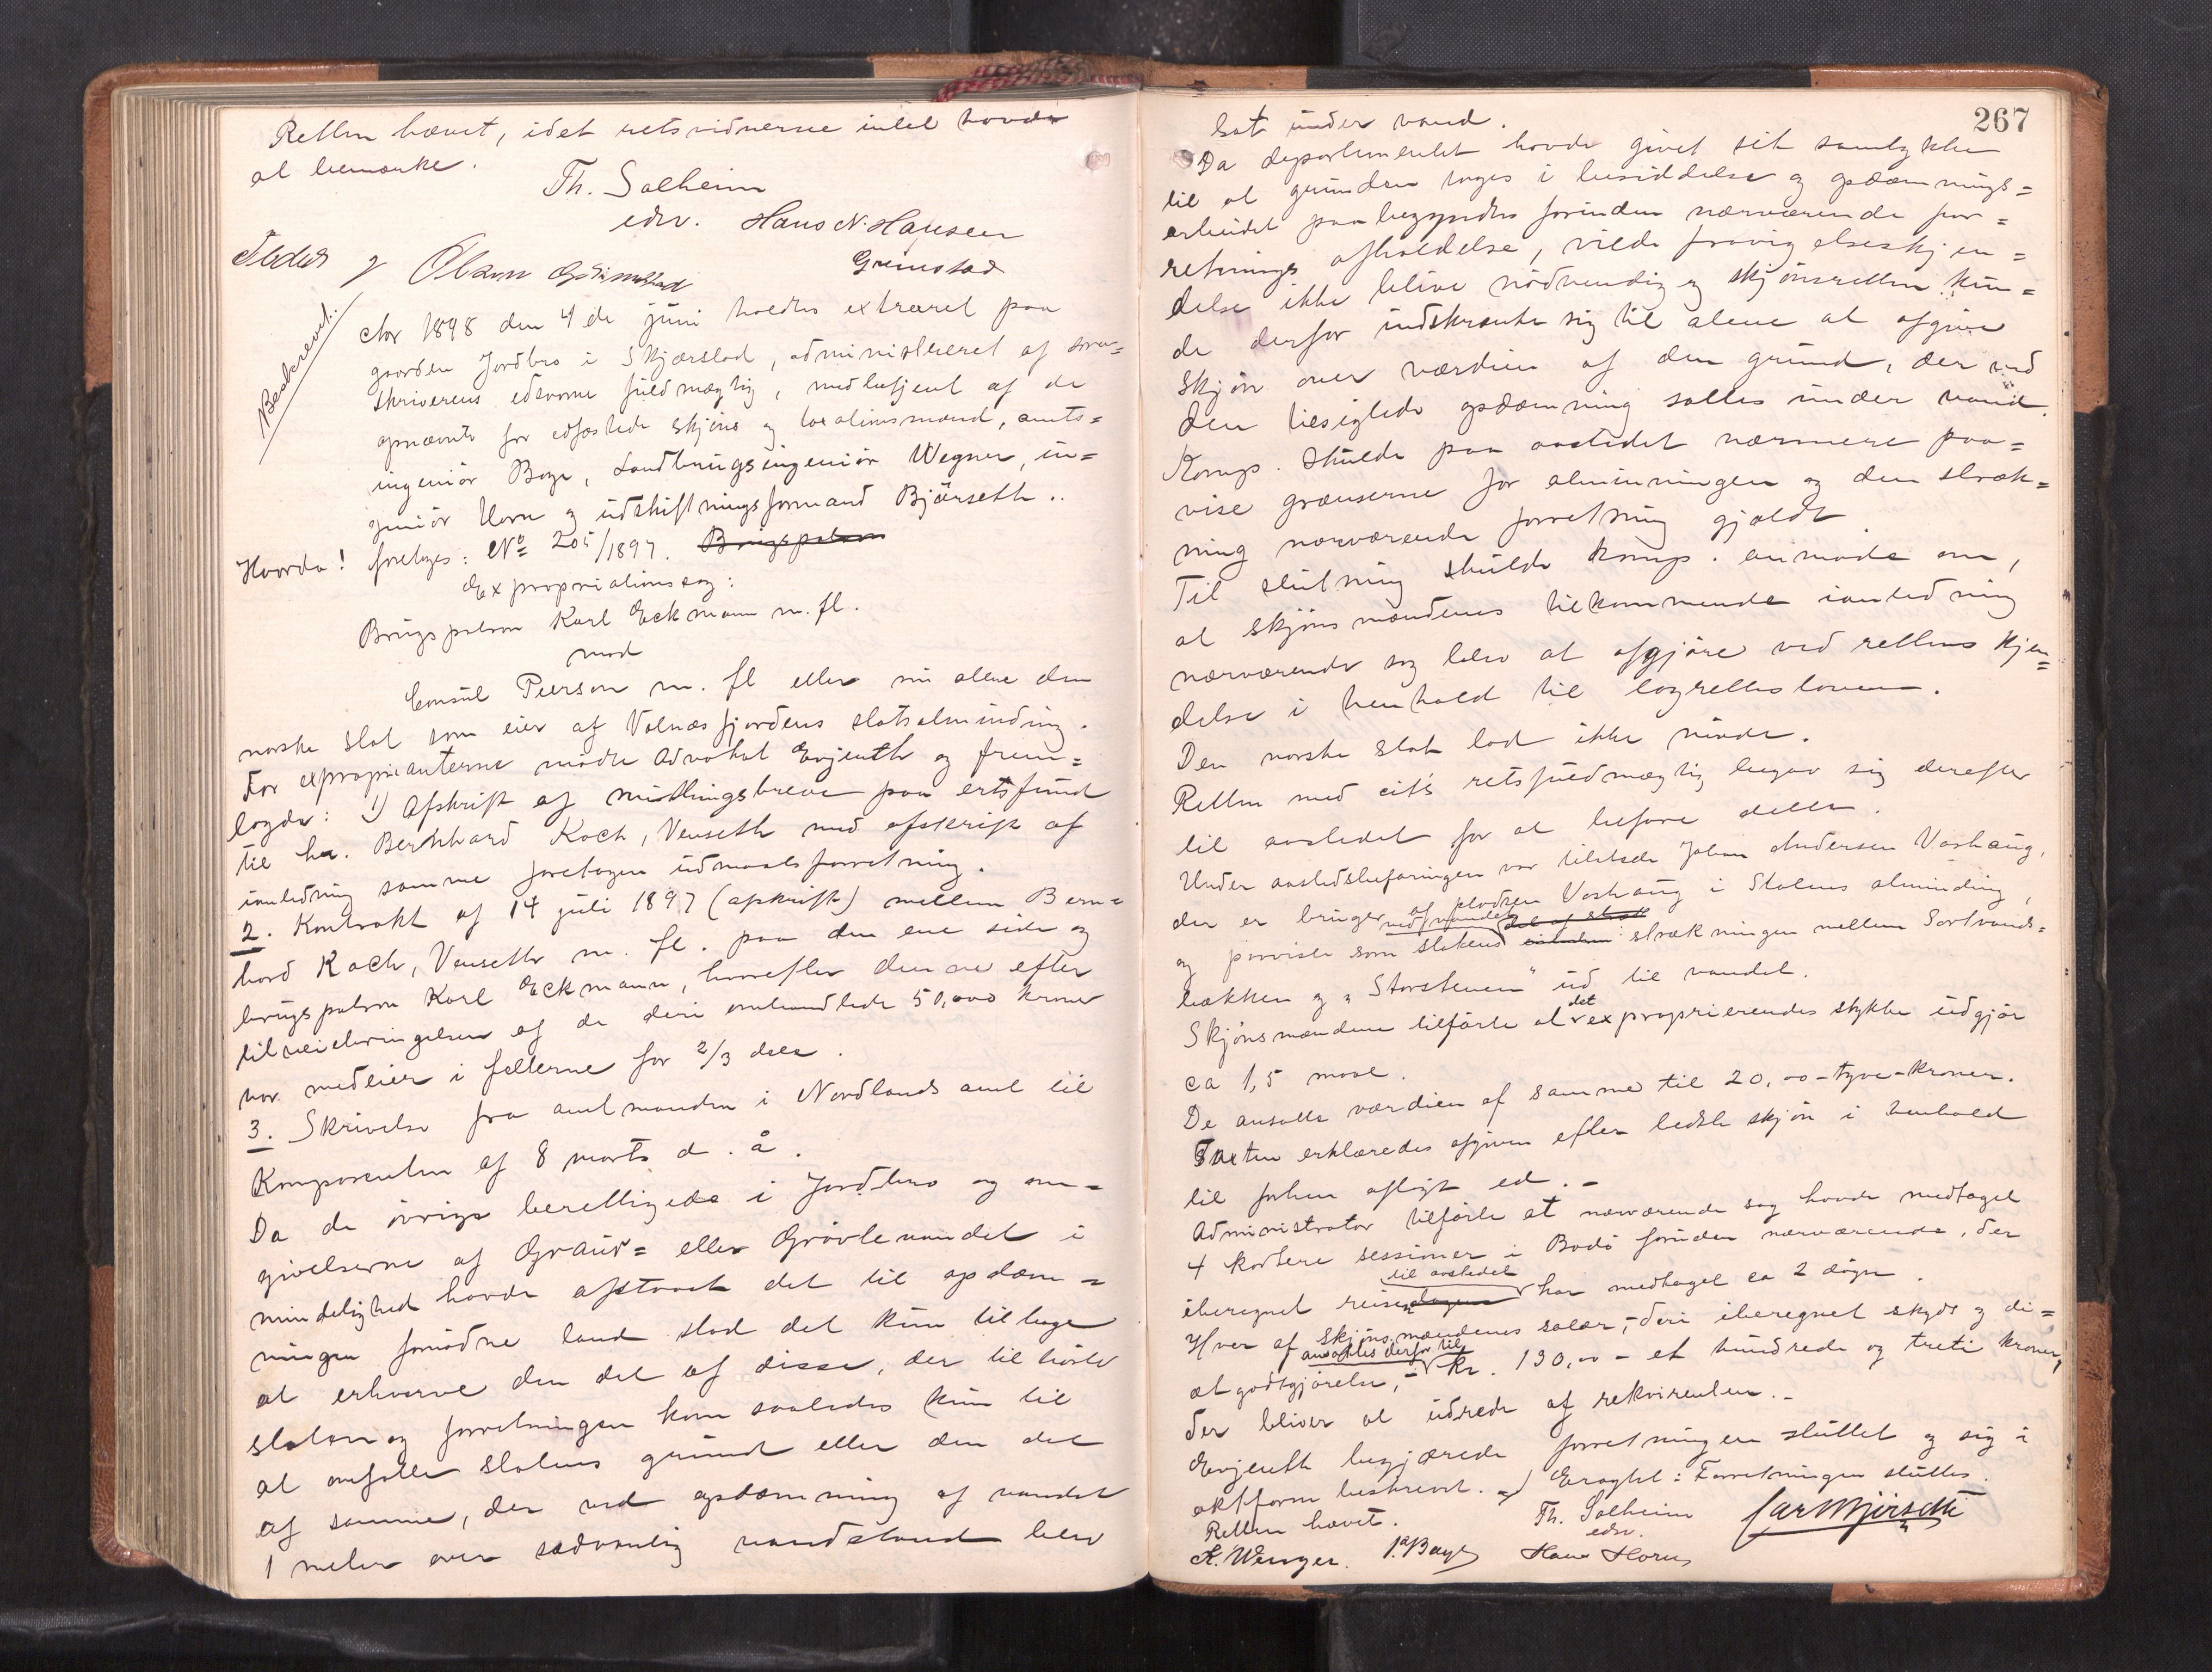 Retten hævet, idet retsvidnerne intet havde
at bemærke.
Th. Solheim
edsv. Hans N. Hansen
Grimstad
Peder J Olsen Grimstad
Beskrevet.
Aar 1898 den 4de juni holdtes extraret paa
gaarden Jordbro i Skjærstad, administreret af soren=
skriverens edsvorne fuldmægtig, medbetjent af de
opnævnte før edfæstede skjöns og taxationsmænd, amts=
ingeniör Boye, Landbrugsingeniör Wegner, in=
geniör Horn og udskiftningsformand Björseth..
Hvorda! foretoges: No 205/1897. Brugspatron
Expropriationssag:
Brugspatron Karl Eckmann m. fl.
mod
Consul Persson m. fl eller nu alene den
norske stat som eier af Valnæsfjordens statsalminding.
For exproprianterne mödte Advokat Evjenth og frem=
lagde: 1) Afskrift af mutingsbreve paa ertsfund
til hr. Bernhard Koch, Venseth med afskrift af
i anledning samme foretagen udmaalsforretning.
2. Kontrakt af 14 juli 1897 (afskrift) mellem Bern=
hard Koch, Venseth m. fl. paa den ene side og
brugspatron Karl Eckmann, hvorefter denne efter
tilveiebringelsen af de deri omhandlede 50,000 kroner
var medeier i felterne for 2/3 dele.
3. Skrivelse fra amtmanden i Nordlands amt til
Komparenten af 8 marts d. å.
Da de övrige berettigede i Jordbro og om=
givelserne af Graur= eller Grövlevandet i
mindelighed havde afstaaet det til opdæm=
ningen fornödne land stod det kun tilbage
at erhverve den del af disse, der tilhörte
staten og forretningen kom saaledes kun til
at omfatte statens grund eller den del
af samme, der ved opdæmning af vandet
1 meter over sædvanlig vandstand blev
267
sat under vand.
Da departementet havde givet sit samtykke
til at grunden toges i besiddelse og opdæmnings=
arbeidet paabegyndtes forinden nærværende for=
retnings afholdelse, vilde fravigelseskjen=
delse ikke blive nödvendig og skjönsretten kun=
de derfor indskrænke sig til alene at afgive
skjön over værdien af den grund, der ved
den tilsigtede opdæmning sattes under vand.
Komp. skulde paa aastedet nærmere paa=
vise grænserne for alminningen og den stræk=
ning nærværende forretning gjaldt.
Til slutning skulde komp. anmode om,
at skjönsmændenes tilkommende i anledning
nærværende sag blev at afgjöre ved rettens kjen=
delse i henhold til lagrettesloven.
Den norske stat lod ikke möde.
Retten med cit's retsfuldmægtig begav sig derefter
til aastedet for at befare dette.
Under aastedsbefaringen var tilstede Johan Andersen Vashaug,
der er bruger af pladsen Vashaug i Statens alminding,
og paaviste som statens ved vandet del af strak strækningen mellem Sortvands=
bækken og "Storstenen" ud til vandet.
Skjönsmændene tilförte at det exproprierendes stykke udgjör
ca 1,5 maal.
De ansatte værdien af samme til 20,00 - tyve - kroner.
Taxten erklæredes afgiven efter bedste skjön i henhold
til forhen aflagt ed. -
Administrator tilförte at nærværende sag havde medtaget
4 kortere sessioner i Bodö foruden nærværende, der
iberegnet reisen til aastedet har medtaget ca 2 dögn.
Hver af skjönsmændenes salær, - deri iberegnet skyds og di=
ætgodtgjörelse, - ansattes derfor til kr. 130,00 - et hundrede og treti kroner,
der bliver at udrede af rekvirenten. -
Evjenth begjærede forretningen sluttet og sig i
aktform beskrevet. Eragtet: Forretningen sluttes.
Retten hævet. Th. Solheim
edsv.
K. Wenger. P. Boye Hans Horn Carl Björseth